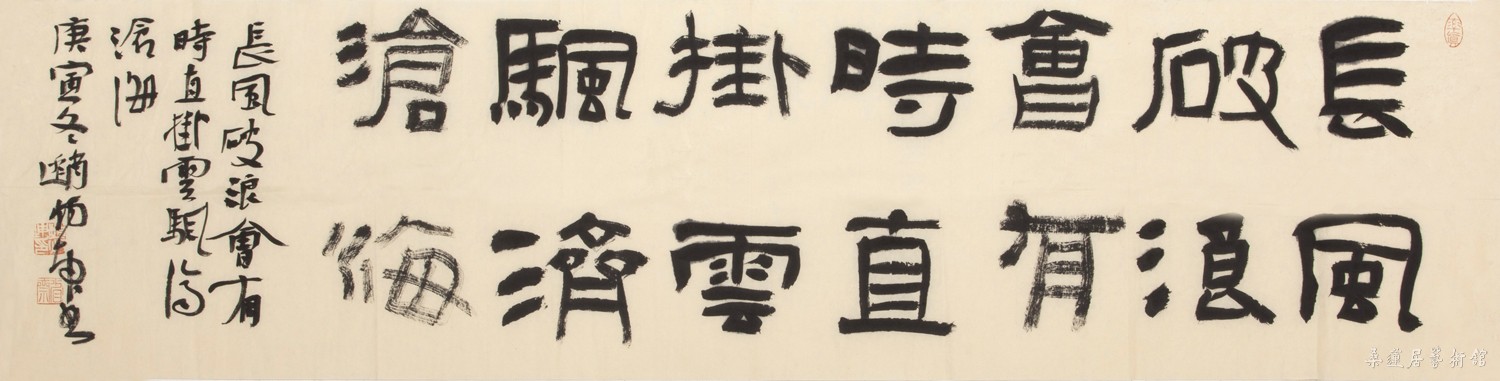 長風
破浪
會有
時直
掛雲
颿濟
滄海
長風破浪會有
時直掛雲颿濟
滄海
庚寅冬
桑蓮居藝術館